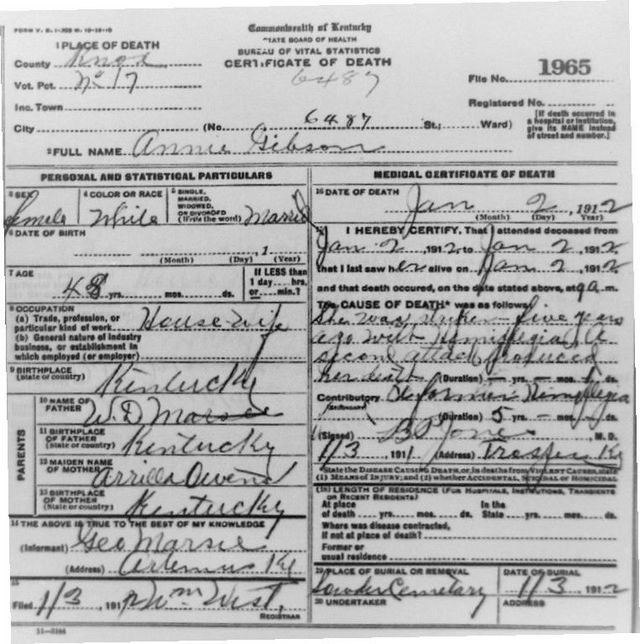 Commonwealth of Kentucky
STATE BOARD OF HEALTH
BUREAU OF VITAL STATISTICS
CERTIFICATE OF DEATH
6487
1 PLACE OF DEATH
County Knox
Vot. Pct. No 17
Inc. Town
City (No. 6487 St.; Ward)
File No. 1965
Registered No.
[If death occurred in
a hospital or institution,
give its NAME instead
of street and number.]
2 FULL NAME Annie Gibson
PERSONAL AND STATISTICAL PARTICULARS
3 SEX Female
4 COLOR OR RACE White
5 SINGLE,
MARRIED,
WIDOWED,
OR DIVORCED
(Write the word) Married
6 DATE OF BIRTH
, 1
(Month) (Day) (Year)
7 AGE
48 yrs. mos. ds.
If LESS than
1 day.... hrs.
or.... min.?
8 OCCUPATION
(a) Trade, profession, or
particular kind of work House wife
(b) General nature of industry
business, or establishment in
which employed (or employer)
9 BIRTHPLACE
(State or country) Kentucky
PARENTS
10 NAME OF
FATHER W.D Marsee
11 BIRTHPLACE
OF FATHER
(State or country) Kentucky
12 MAIDEN NAME
OF MOTHER Arrilla Owens
13 BIRTHPLACE
OF MOTHER
(State or country) Kentucky
14 THE ABOVE IS TRUE TO THE BEST OF MY KNOWLEDGE
(Informant) Geo Marsee
(Address) Artemus Ky
15
Filed 1/3, 191 Wm West,
REGISTRAR
11-3184
MEDICAL CERTIFICATE OF DEATH
16 DATE OF DEATH
Jan 2, 1912
(Month) (Day) (Year)
I HEREBY CERTIFY, That I attended deceased from
Jan 2 1912 to Jan 2, 1912
that I last saw her alive on Jan 2, 1912
and that death occured, on the date stated above, at 9 a m.
The CAUSE OF DEATH* was as follows:
She was striken five years
ago with Hemiplegia A
second attack produced
her death (Duration) yrs. mos. ds.
Contributory former Hemiplegia
(SECONDARY)
(Duration) 5 yrs. mos. ds.
(Signed) B P Jones M. D.
1/3, 191 (Address) Ky
*State the DISEASE CAUSING DEATH, or, in deaths from VIOLENT CAUSES, state
(1) MEANS OF INJURY; and (2) whether ACCIDENTAL, SUICIDAL or HOMICIDAL
(18) LENGTH OF RESIDENCE (FOR HOSPITALS, INSTITUTIONS, TRANSIENTS
OR RECENT RESIDENTS)
At place
of death yrs. mos. ds.
In the
State yrs. mos. ds.
Where was disease contracted,
if not at place of death?
Former or
usual residence
19 PLACE OF BURIAL OR REMOVAL
Cemetary
DATE OF BURIAL
1/3 1912
20 UNDERTAKER
ADDRESS